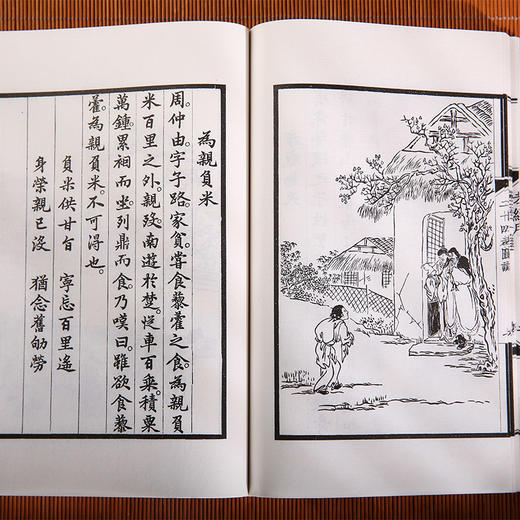 為親負米
周。仲由。字子路。家貧。嘗食藜藿之食。為親負
米百里之外。親歿。南遊於楚。從車百乘。積粟
萬鍾。累裀而坐。列鼎而食。乃嘆曰。雖欲食藜
藿。為親負米。不可得也。
負米供甘旨 寧忘百里遙
身榮親已沒 猶念舊劬勞